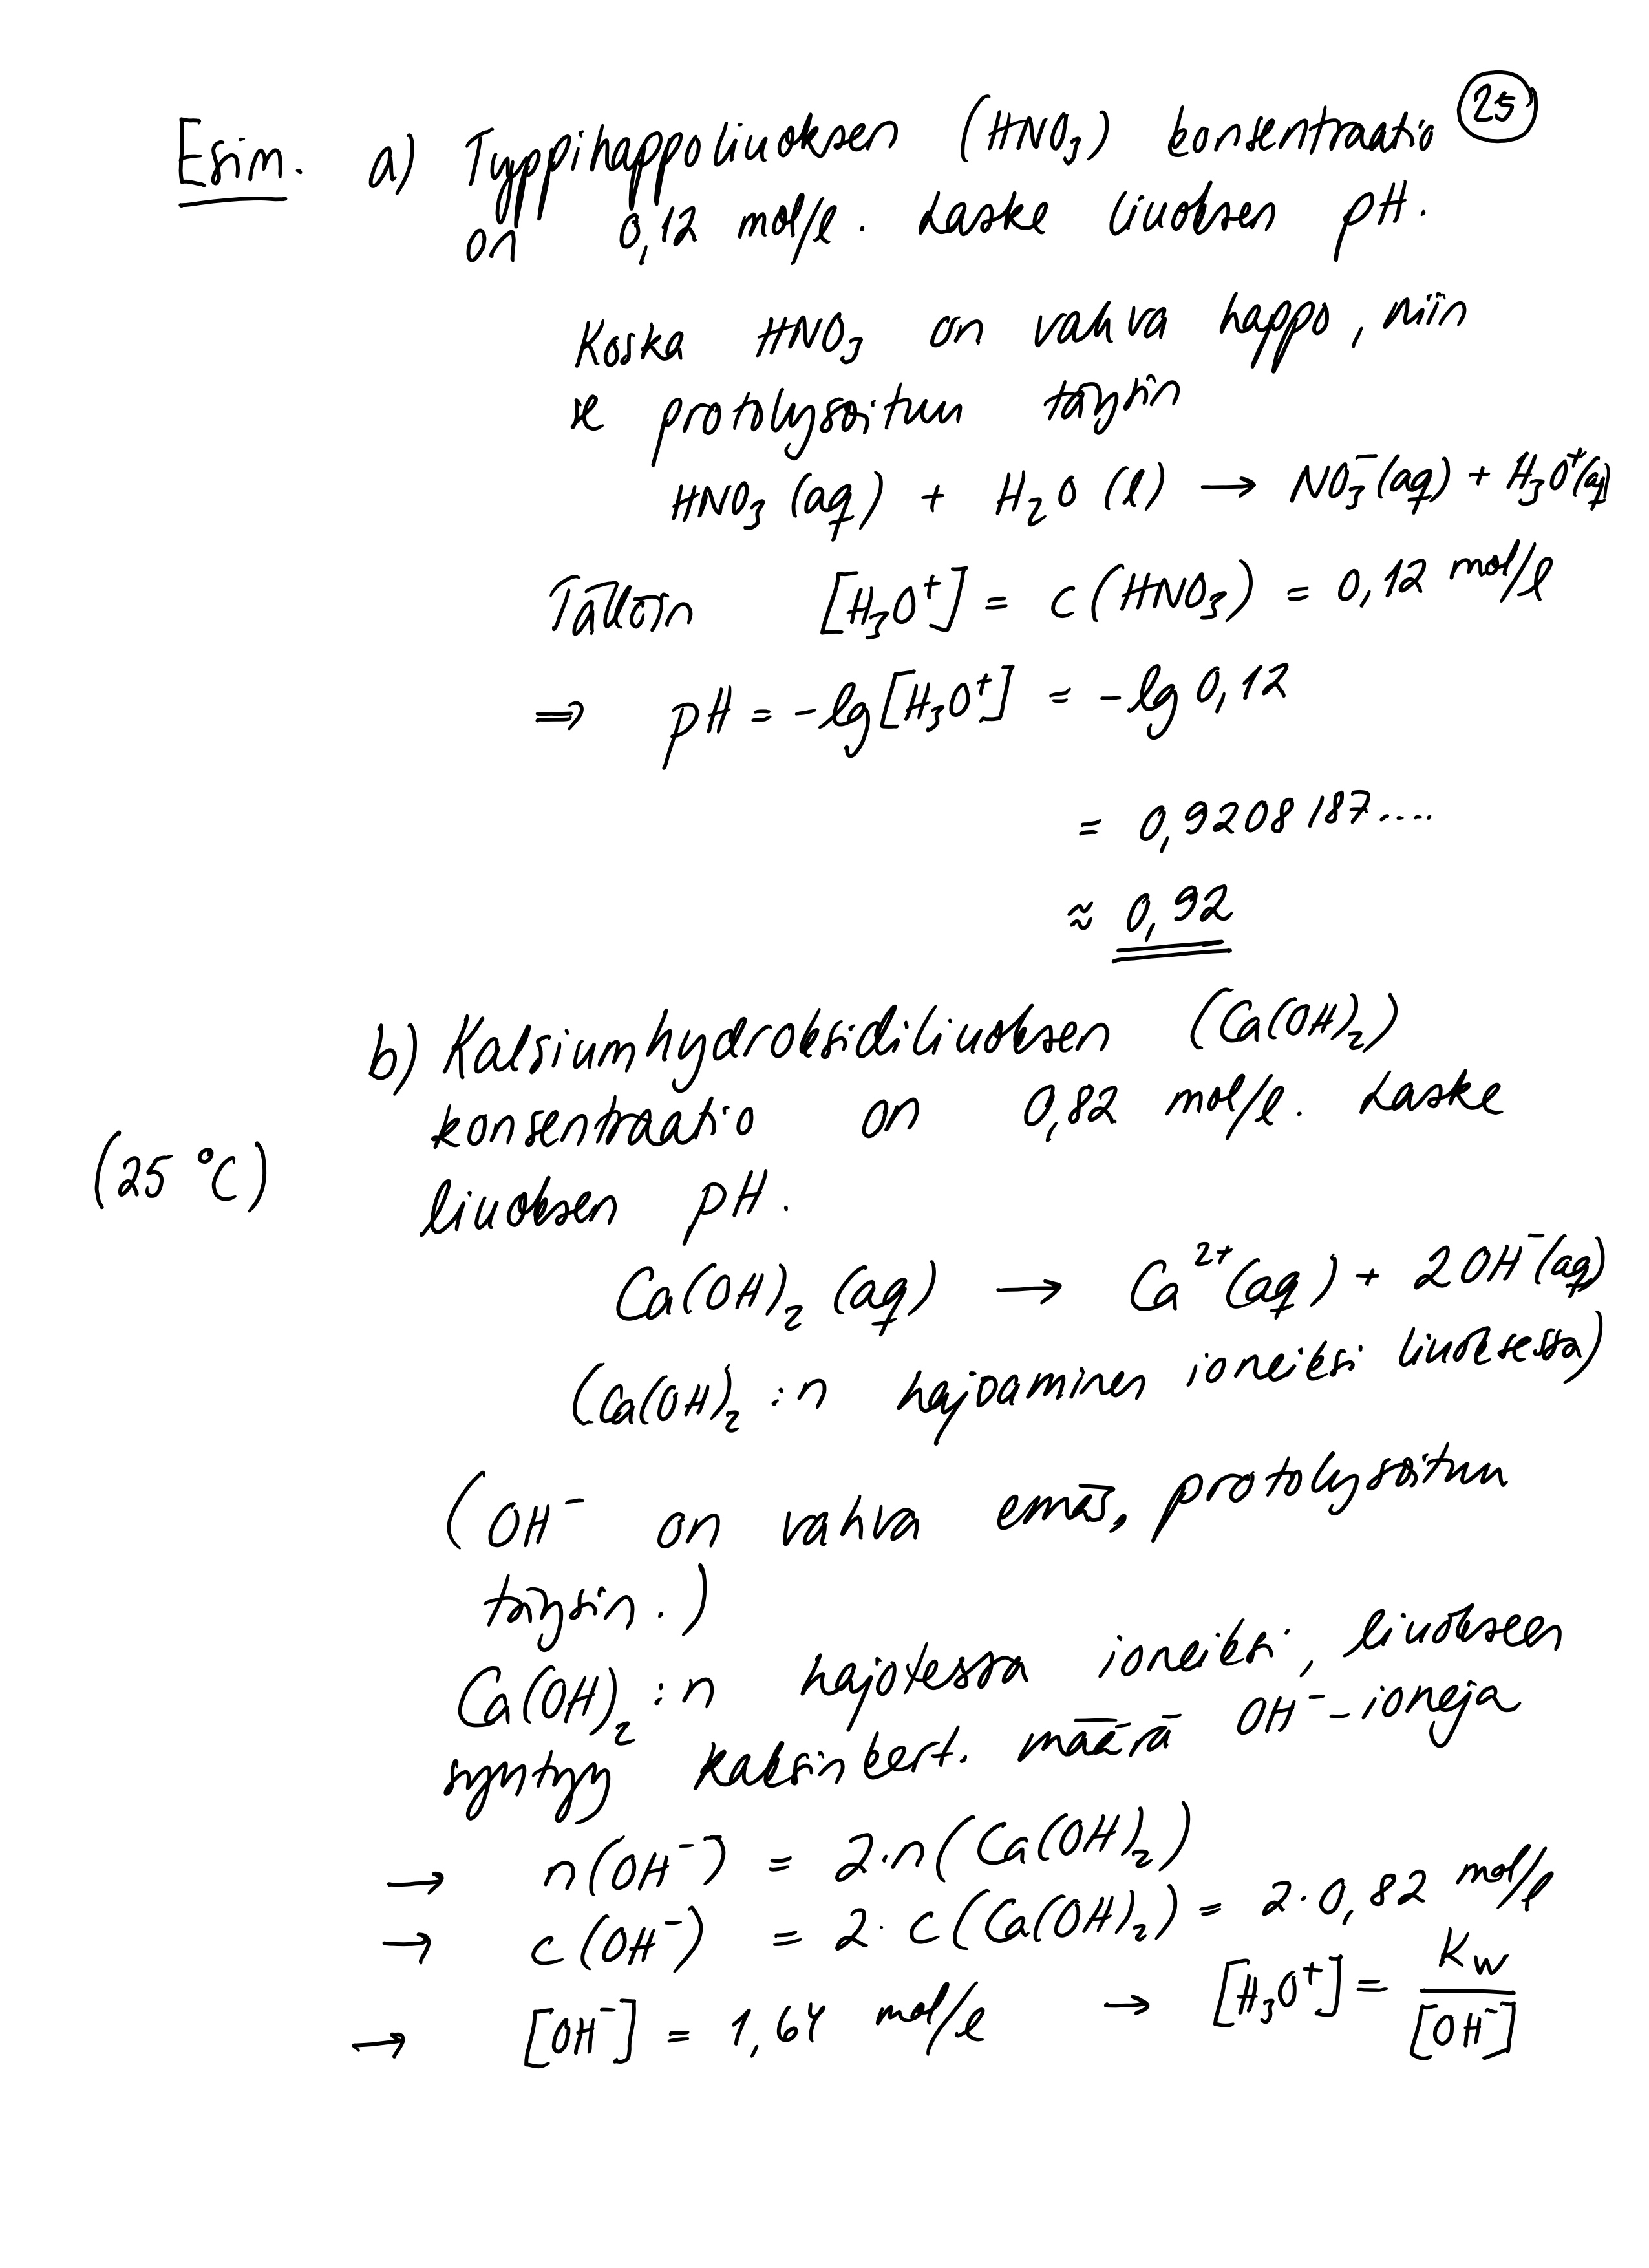 25
Esim. a) Typpihappoliuoksen (HNO₃) konsentraatio
on 0,12 mol/l. Laske liuoksen pH.
Koska HNO₃ on vahva happo, niin
se protolysoituu täysin
HNO₃ (aq) + H₂O (l) → NO₃⁻(aq) + H₃O⁺(aq)
Tällöin [H₃O⁺] = c(HNO₃) = 0,12 mol/l
⇒ pH = -lg[H₃O⁺] = -lg 0,12
= 0,9208187....
≈ 0,92
b) Kalsiumhydroksidiliuoksen (Ca(OH)₂)
konsentraatio on 0,82 mol/l. Laske
(25 °C) liuoksen pH.
Ca(OH)₂ (aq) → Ca²⁺(aq) + 2OH⁻(aq)
(Ca(OH)₂:n hajoaminen ioneiksi liuoksessa)
(OH⁻ on vahva emäs, protolysoituu
täysin.)
Ca(OH)₂:n hajotessa ioneiksi, liuokseen
syntyy kaksinkert. määrä OH⁻-ioneja
→ n(OH⁻) = 2·n(Ca(OH)₂)
→ c(OH⁻) = 2·c(Ca(OH)₂) = 2·0,82 mol/l
→ [OH⁻] = 1,64 mol/l → [H₃O⁺] = Kw/[OH⁻]